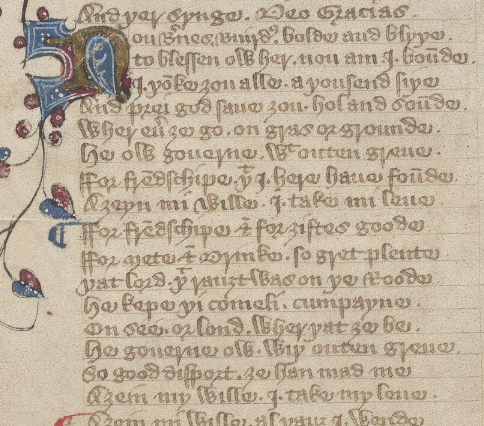 And þer synge. Deo Gracias
Nou Bnes. buird'. bolde and blyþe.
to blessen ow her. nou am I. boūde.
I. þōke ȝou alle. a þousend siþe
And prei god saue ȝou. hol and soūde.
Wher eu̅ ȝe go. on gras or grounde.
He ow gouerne. wᵗ outen greue.
ffor frēdschipe. þᵗ I. here haue foūde.
Aȝeyn mi wille. I. take mi leue.
ffor frēdschipe. & for ȝiftes goode
ffor mete. & Drinke. so gret plente
þat lord. þᵗ rauȝt was on þe Roode
He kepe þi comeli. cumpayne.
On see. or lond. wher þat ȝe be.
He gouerne ow. wiþ outen greue.
So good disport. ȝe han mad me
Aȝein my wille. I. take my leue.
Aȝein mi wille. al þauȝ I. wende